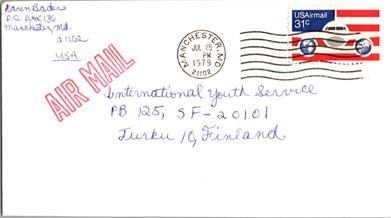 Karen Bader
P.O. Box 186
Manchester, Md.
21102
USA
AIR MAIL
MANCHESTER, MD
JUL 25
PM
1979
21102
USAirmail
31c
International Youth Service
PB 125, SF-20101
Turku 10, Finland